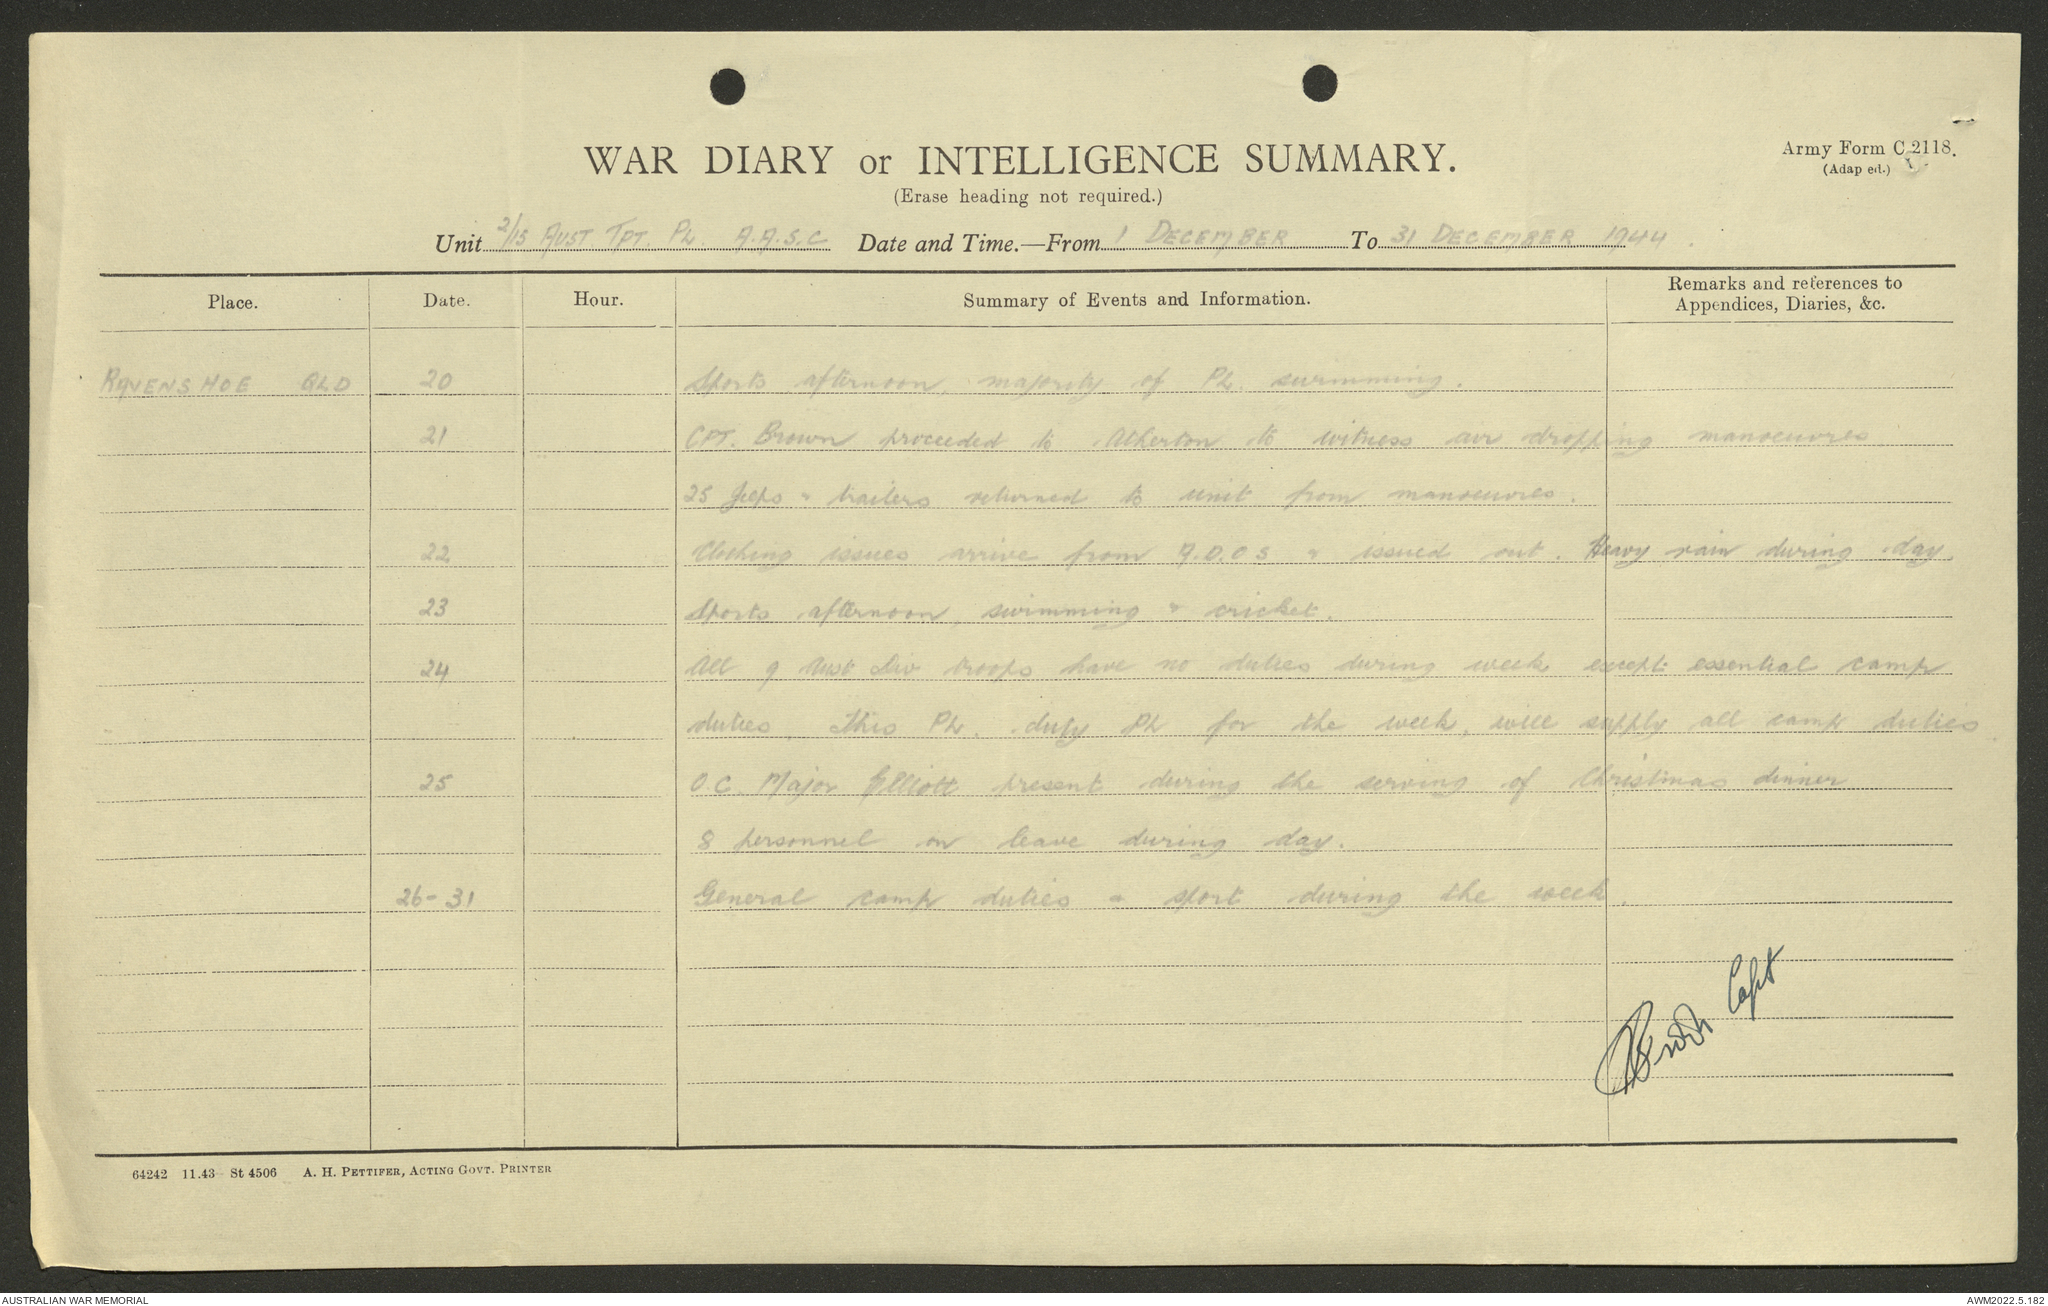 WAR DIARY or INTELLIGENCE SUMMARY.
(Erase heading not required.)
Army Form C 2118.
(Adap ed.)
Unit 2/15 AUST. TPT. PL. A.A.S.C Date and Time.—From 1 DECEMBER To 31 DECEMBER 1944.
Place. Date. Hour. Summary of Events and Information. Remarks and references to Appendices, Diaries, &c.
RAVENSHOE QLD 20 Sports afternoon, majority of PL. swimming.
21 CPT. Brown proceeded to Atherton to witness air dropping manoeuvres
25 Jeeps & trailers returned to unit from manoeuvres.
22 Clothing issues arrive from A.D.O.S & issued out. Heavy rain during day.
23 Sports afternoon, swimming & cricket.
24 All 9 Aust Div troops have no duties during week except essential camp
duties. This PL. duty PL for the week, will supply all camp duties
25 O.C. Major Elliott present during the serving of Christmas dinner
8 personnel on leave during day.
26-31 General camp duties & sport during the week.
Capt
64242 11.43 St 4506 A. H. PETTIFER, ACTING GOVT. PRINTER
AUSTRALIAN WAR MEMORIAL AWM2022.5.182